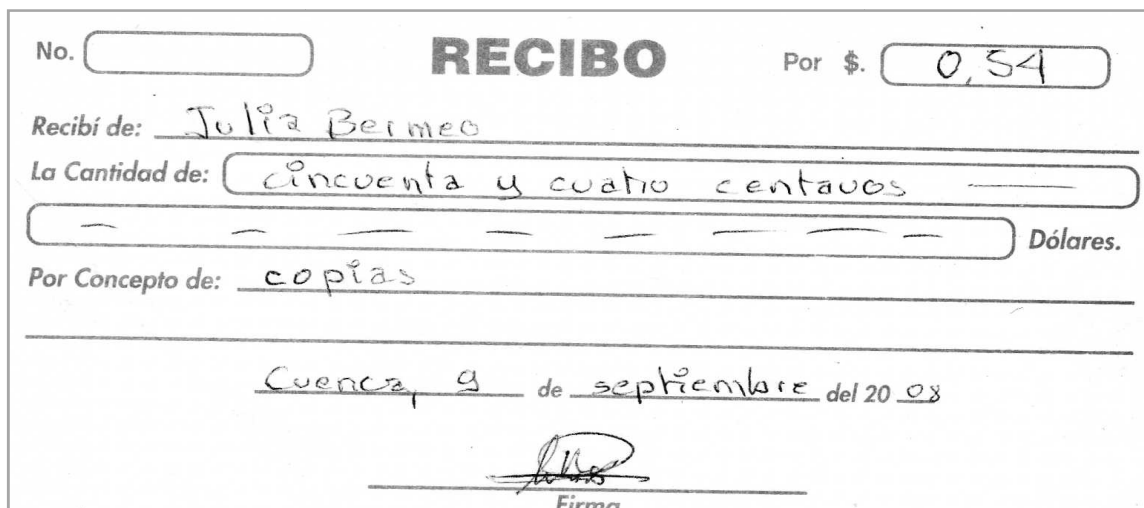 No. RECIBO Por $. 0,54
Recibí de: Julia Bermeo
La Cantidad de: cincuenta y cuatro centavos
Dólares.
Por Concepto de: copias
Cuenca, 9 de septiembre del 20 08
Firma